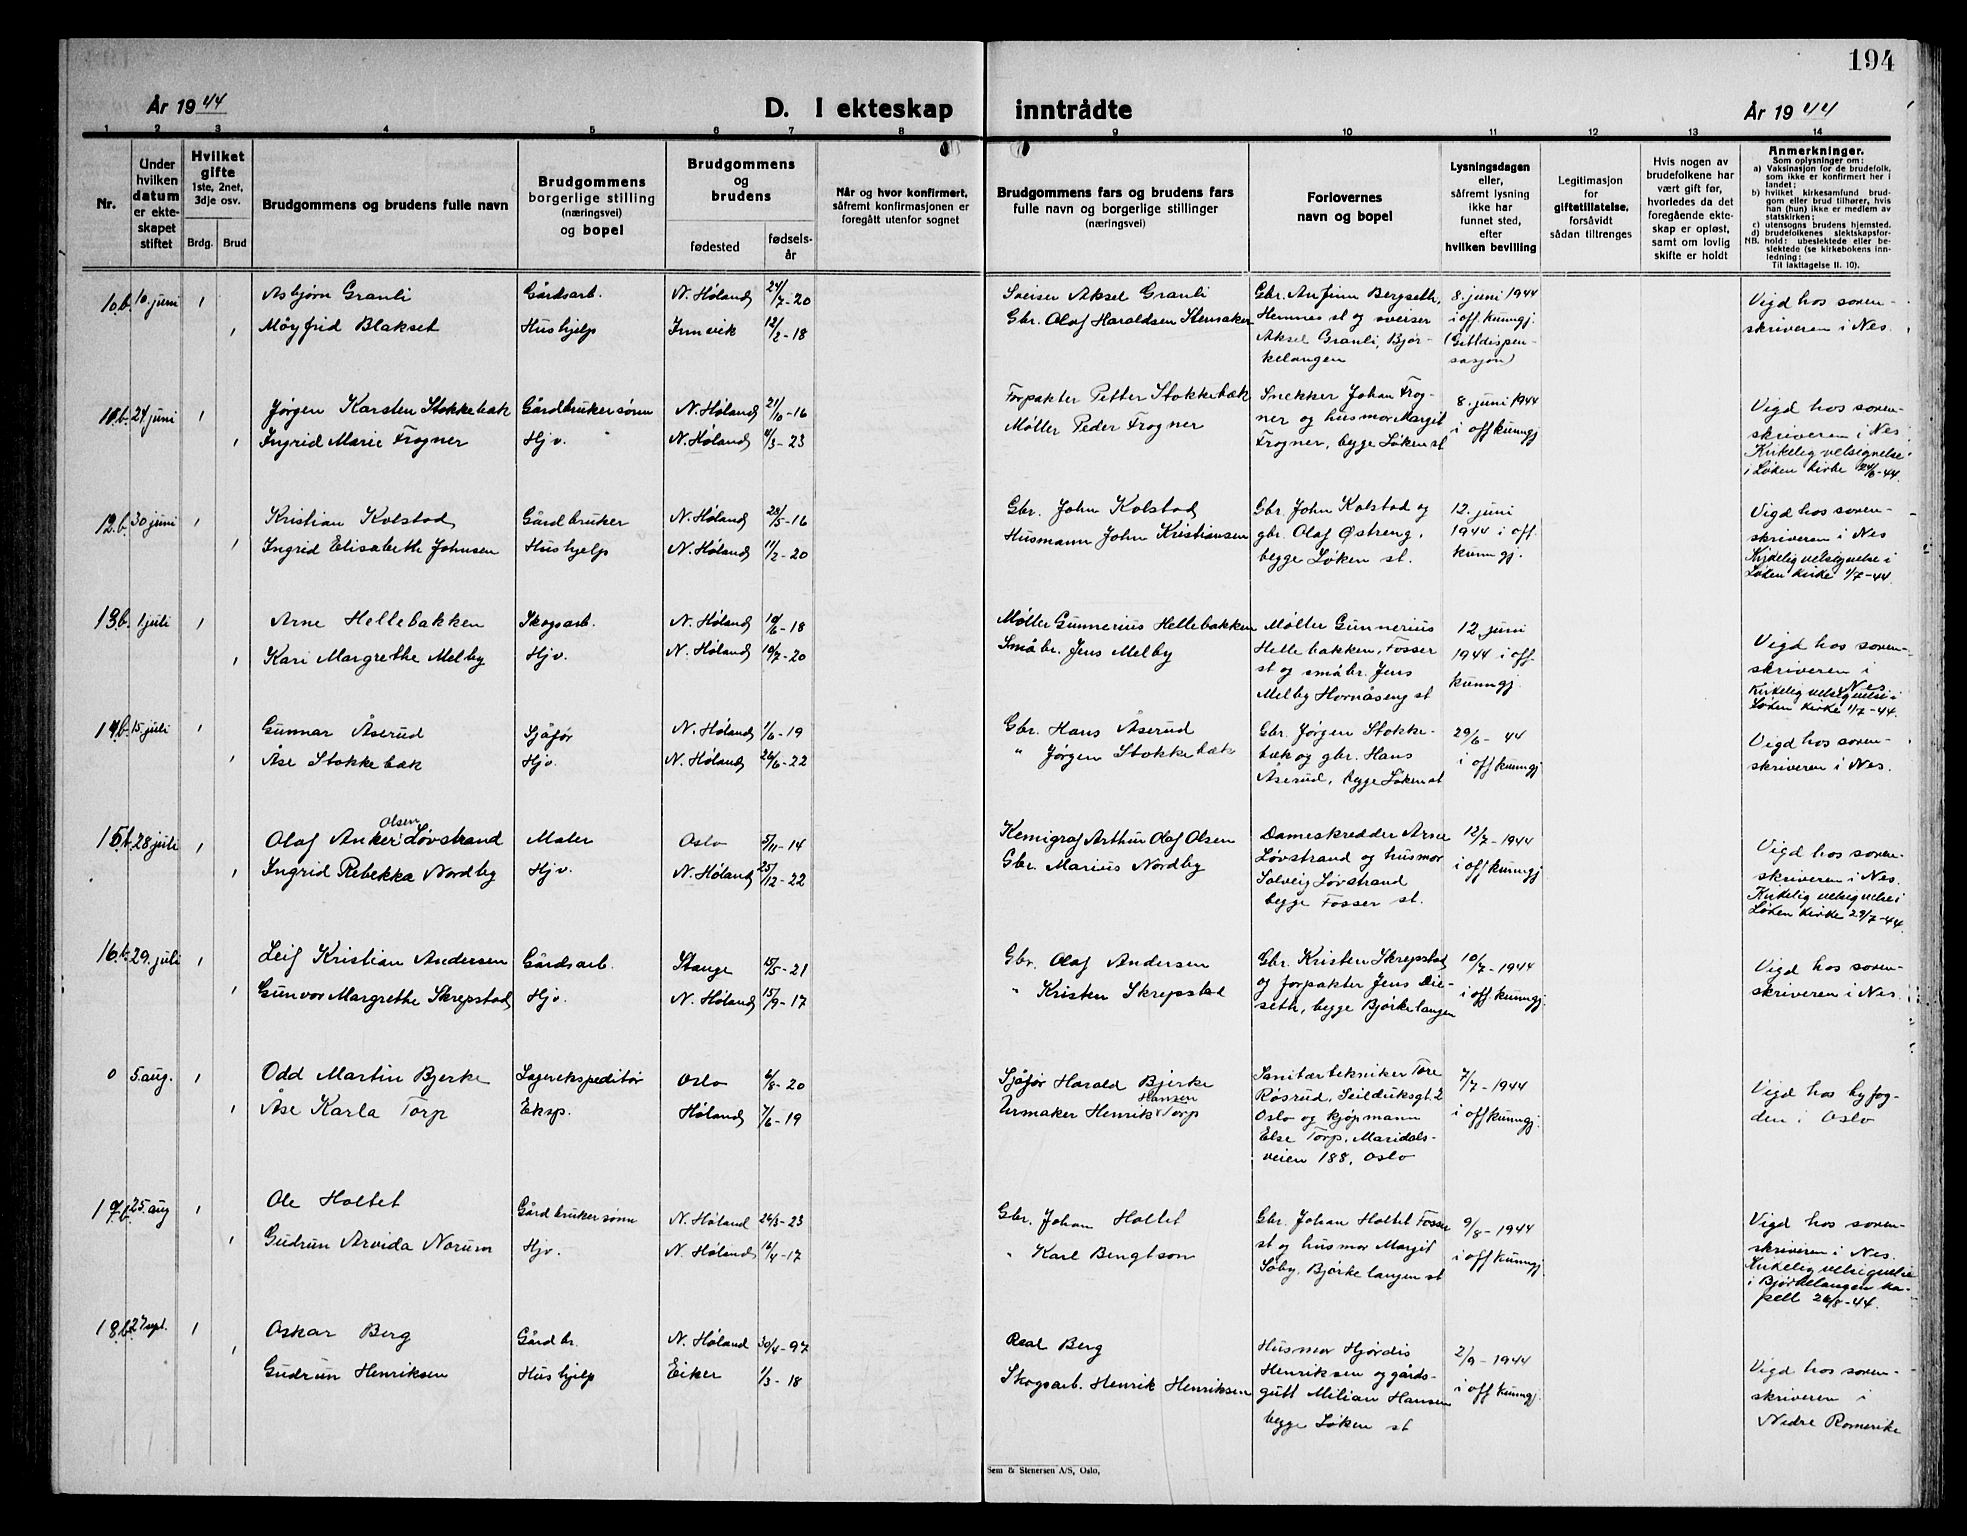 194
År 1944
D. I ekteskap inntrådte
År 1944
1 2 3 4 5 6 7 8 9 10 11 12 13 14
Nr.
Under hvilken datum er ekteskapet stiftet
Hvilket gifte 1ste, 2net, 3dje osv.
Brdg. Brud
Brudgommens og brudens fulle navn
Brudgommens borgerlige stilling (næringsvei) og bopel
Brudgommens og brudens
fødested
fødselsår
Når og hvor konfirmert, såfremt konfirmasjonen er foregått utenfor sognet
Brudgommens fars og brudens fars fulle navn og borgerlige stillinger (næringsvei)
Forlovernes navn og bopel
Lysningsdagen eller, såfremt lysning ikke har funnet sted, efter hvilken bevilling
Legitimasjon for giftetillatelse, forsåvidt sådan tiltrenges
Hvis nogen av brudefolkene har vært gift før, hvorledes da det foregående ekteskap er opløst, samt om lovlig skifte er holdt
Anmerkninger.
Som oplysninger om:
a) Vaksinasjon for de brudefolk, som ikke er konfirmert her i landet;
b) hvilket kirkesamfund brudgom eller brud tilhører, hvis han (hun) ikke er medlem av statskirken;
c) utensogns brudens hjemsted.
d) brudefolkenes slektskapsforhold: ubeslektede eller beslektede (se kirkebokens innledning:
NB. Til Iakttagelse II. 10).
10.b. 10. juni 1 Asbjørn Granli Gårdsarb. N. Høland 24/7-20 Sveiser Aksel Granli Gbr. Anfinn Bergseth, 8. juni 1944 Vigd hos soren-
1 Möyfrid Blakset Hushjelp Innvik 12/2-18 Gbr. Olaf Haraldsen Stensaker Hemnes st og sveiser i off. kunngj. skriveren i Nes.
Aksel Granli, Bjør-
kelangen
11.b. 24 juni 1 Jørgen Karsten Stokkebæk Gårdbrukersønn N. Høland 21/10-16 Forpakter Petter Stokkebæk Snekker Johan Frog- 8. juni 1944 Vigd hos soren-
1 Ingrid Marie Frogner Hjv. N. Høland 4/3-23 Møller Peder Frogner ner og husmor Margit i off kunngj skriveren i Nes.
Frogner, begge Løken st Kirkelig velsignelse
i Løken kirke 24/6-44.
12.b. 30 juni 1 Kristian Kolstad Gårdbruker N. Høland 28/5-16 Gbr. John Kolstad Gbr. John Kolstad og 12. juni Vigd hos soren-
1 Ingrid Elisabeth Johnsen Hushjelp N. Høland 11/2-20 Husmann John Kristiansen gbr. Olaf Østreng, 1944 i off. skriveren i Nes
begge Løken st. kunngj. Kirkelig velsignelse i
Løken kirke 1/7-44.
13.b. 1 juli 1 Arne Hellebakken Skogsarb. N. Høland 10/6-18 Møller Gunnerius Hellebakken Møller Gunnerius 12. juni Vigd hos soren-
1 Kari Margrethe Melby Hjv. N. Høland 10/7-20 Småbr. Jens Melby Hellebakken, Fosser 1944 i off. skriveren i Nes
st og småbr. Jens kunngj. Kirkelig velsignelse i
Melby Hornåseng st Løken kirke 1/7-44.
14.b. 15. juli 1 Gunnar Åserud Sjåfør N. Høland 1/6-19 Gbr. Hans Åserud Gbr. Jørgen Stokke- 29/6-44 Vigd hos soren-
1 Åse Stokkebæk Hjv. N. Høland 26/6-22 " Jørgen Stokkebæk bæk og gbr. Hans i off kunngj skriveren i Nes.
Åserud, begge Løken st
15.b. 28 juli 1 Olaf Anker Olsen Løvstrand Maler Oslo 5/11-14 Kemigraf Arthur Olaf Olsen Dameskredder Arne 12/7-1944 Vigd hos soren-
1 Ingrid Rebekka Nordby Hjv. N. Høland 25/12-22 Gbr. Marius Nordby Løvstrand og husmor i off kunngj skriveren i Nes.
Solveig Løvstrand Kirkelig velsignelse i
begge Fosser st. Løken kirke 29/7-44.
16.b. 29. juli 1 Leif Kristian Andersen Gårdsarb. Stange 15/5-21 Gbr. Olaf Andersen Gbr. Kristen Skrepstad 10/7-1944 Vigd hos soren-
1 Gunvor Margrethe Skrepstad Hjv. N. Høland 15/9-17 " Kristen Skrepstad og forpakter Jens Die- i off kunngj. skriveren i Nes.
seth, begge Bjørkelangen
0 5. aug. 1 Odd Martin Bjerke Lagerekspeditør Oslo 6/8-20 Sjåfør Harald Bjerke Sanitærtekniker Tore 7/7-1944 Vigd hos byfog-
1 Åse Karla Torp Eksp. Høland 7/6-19 Urmaker Henrik Hansen Torp Røsrud, Seilduksgt. 2 i off kunngj. den i Oslo
Oslo og kjøpmann
Else Torp, Maridals-
veien 188, Oslo
17.b. 25. aug 1 Ole Holtet Gårdbrukersønn N. Høland 26/3-23 Gbr. Johan Holtet Gbr. Johan Holtet Fosser 9/8-1944 Vigd hos soren-
1 Gudrun Arvida Norum Hjv. N. Høland 16/4-17 " Karl Bengtson st og husmor Margit i off kunngj. skriveren i Nes.
Søby, Bjørkelangen st Kirkelig velsignelse
i Bjørkelangen ka-
pell 26/8-44.
18.b. 27 sept. 1 Oskar Berg Gårdbr. N. Høland 30/4-97 Real Berg Husmor Hjørdis 2/9-1944 Vigd hos soren-
1 Gudrun Henriksen Hushjelp Eiker 1/3-18 Skogsarb. Henrik Henriksen Henriksen og gårds- i off kunngj. skriveren i
gutt Milian Hansen Nedre Romerike
begge Løken st
Sem & Stenersen A/S, Oslo,